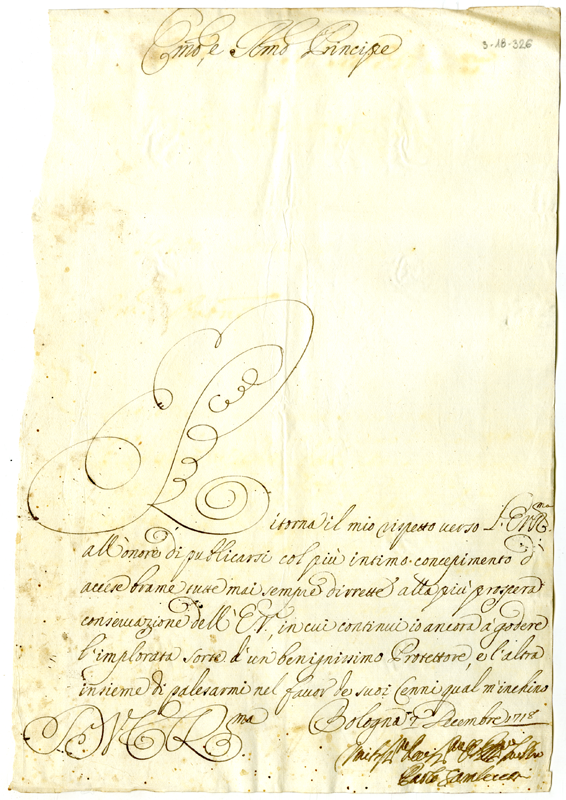 Emo, e Rmo Principe
3-18-326
Ritorna il mio rispetto verso l'Em.R.ma
all'onore di publicarsi col più intimo concepimento d'
accese brame tutte mai sempre dirrette alla più prospera
conservazione dell'E.V., in cui continui io ancora a godere
l'implorata sorte d'un benignissimo Protettore, e l'altra
insieme di palesarmi nel favor de suoi Cenni qual m'inchino
Bologna 7 Decembre 1718
D. V. E. R.ma
Carlo